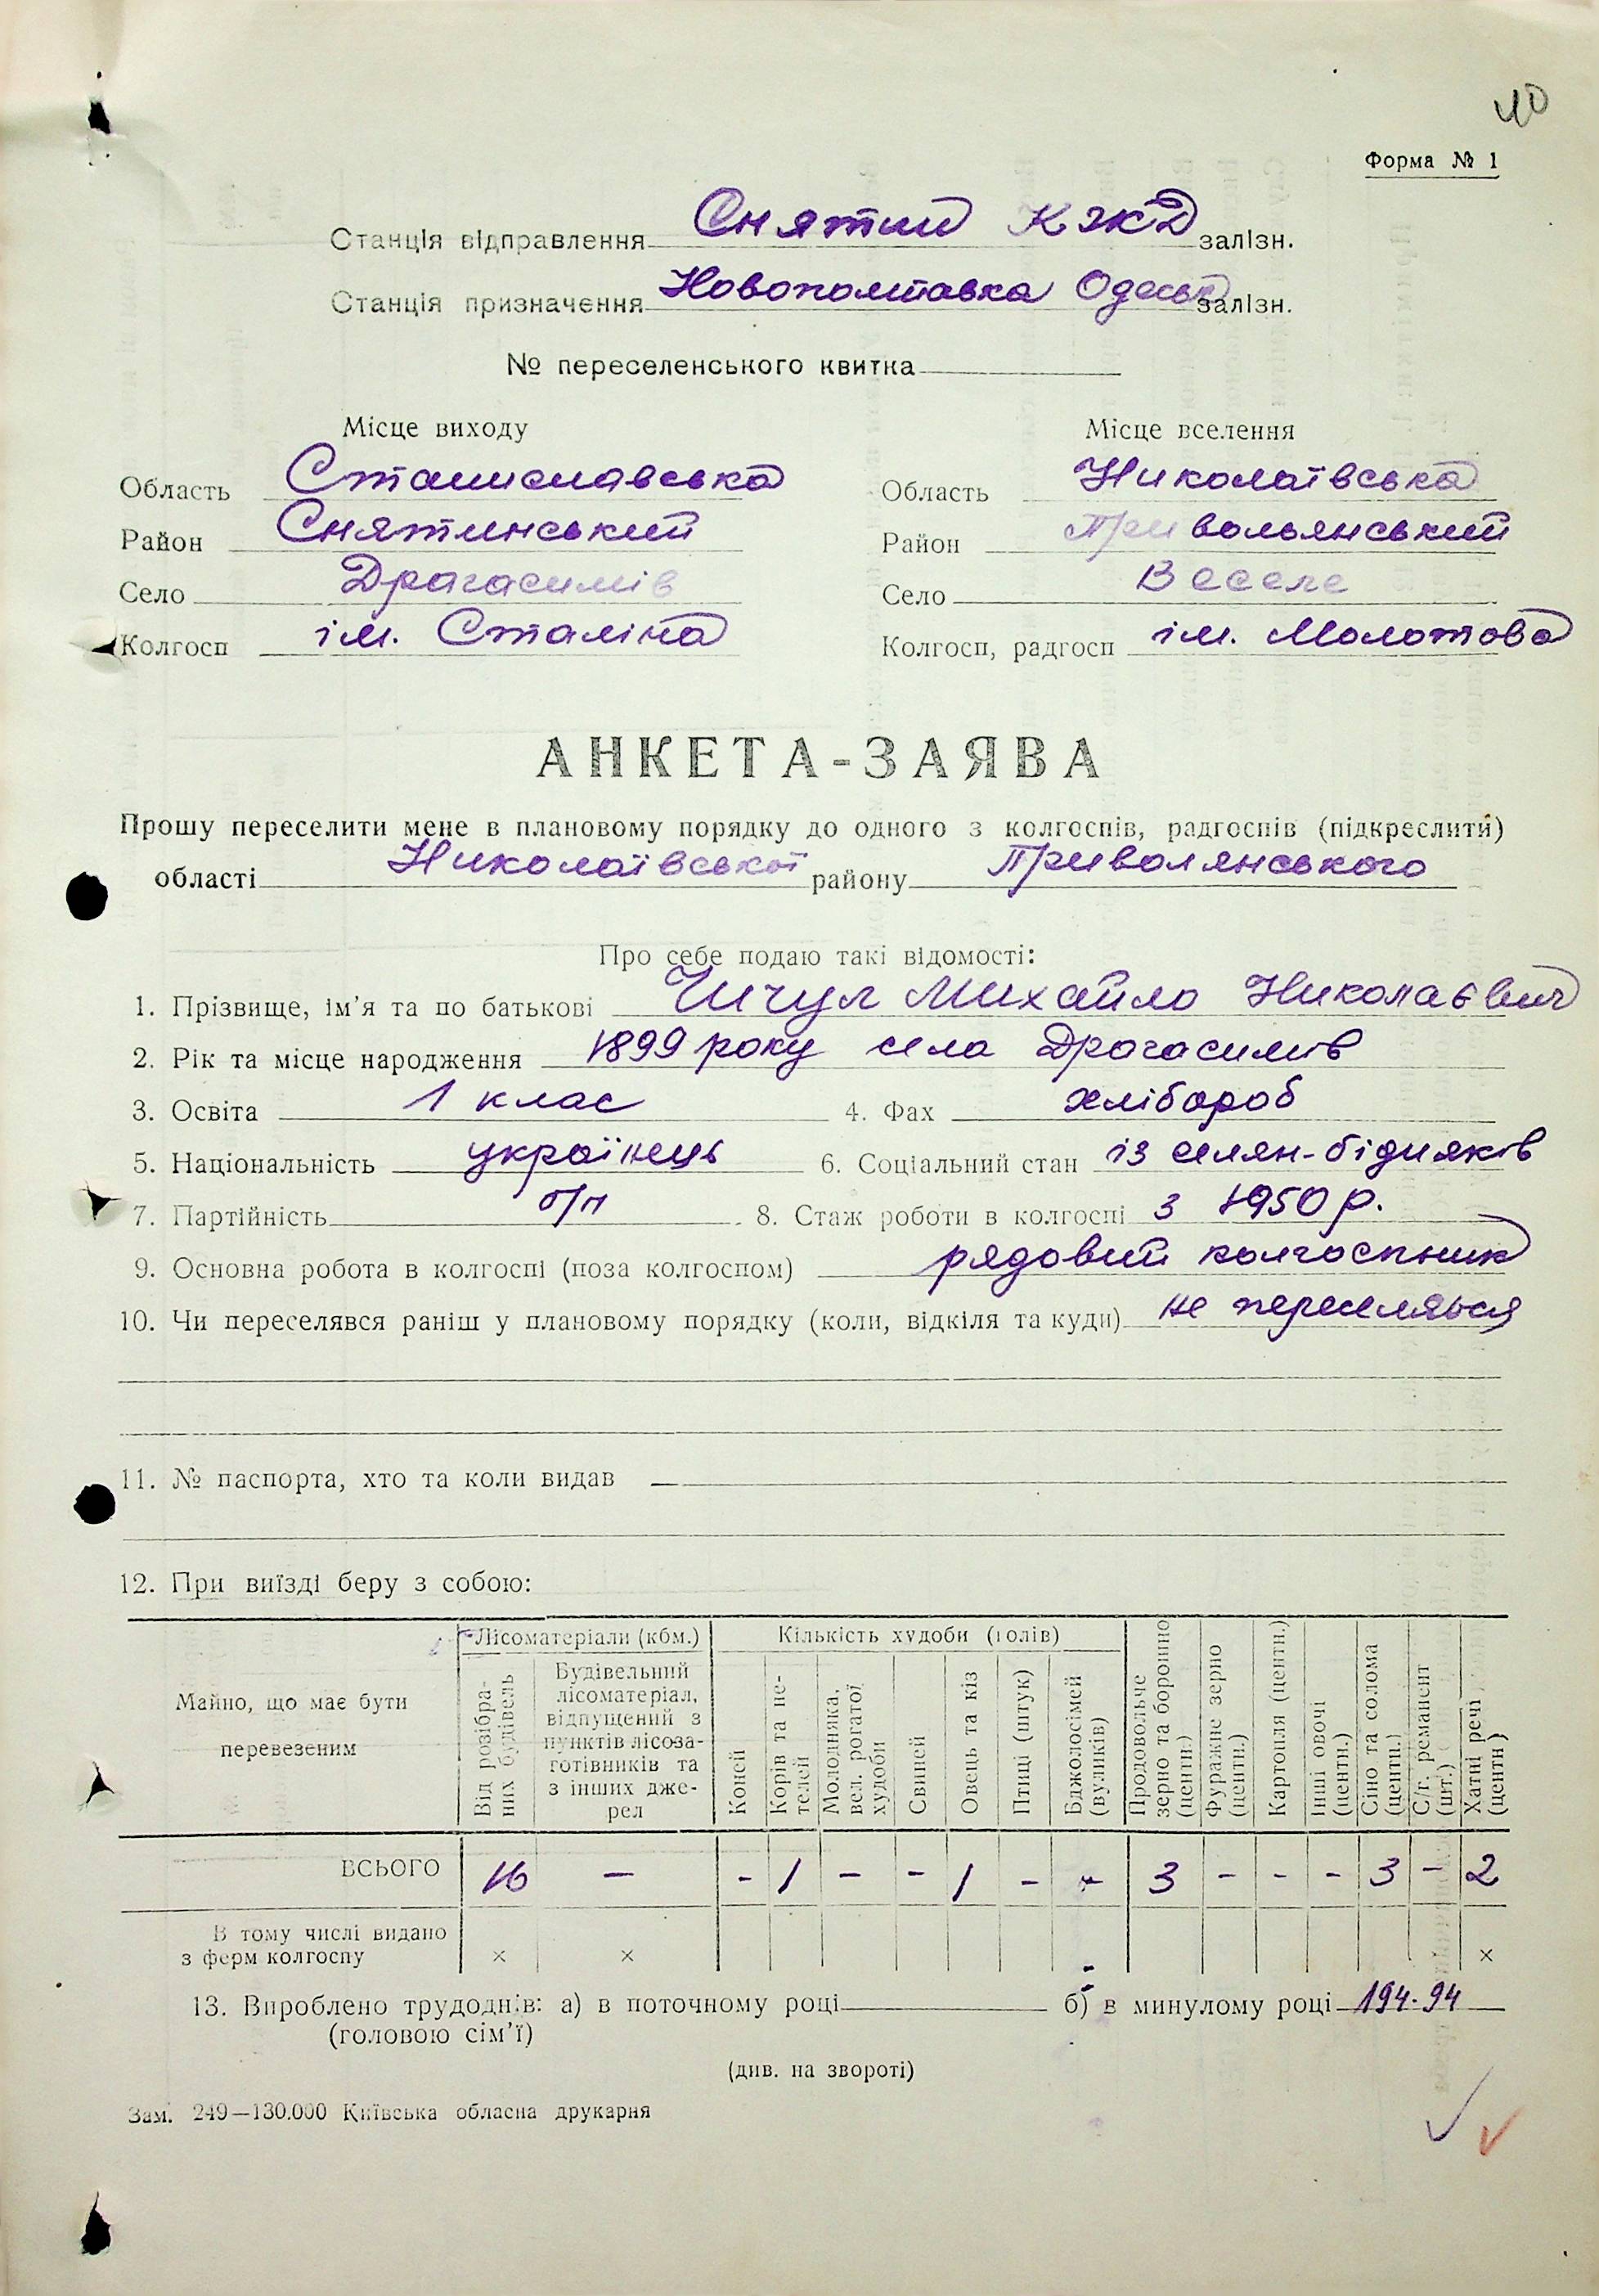 40
Форма № 1
Станція відправлення Снятин КЖД залізн.
Станція призначення Новополтавка Одеськ залізн.
№ переселенського квитка
Місце виходу
Місце вселення
Область Станиславська
Область Николаївська
Район Снятинський
Район Привольянський
Село Драгасимів
Село Веселе
Колгосп ім. Сталіна
Колгосп, радгосп ім. Молотова
АНКЕТА-ЗАЯВА
Прошу переселити мене в плановому порядку до одного з колгоспів, радгоспів (підкреслити)
області Николаївської району Приволянського
Про себе подаю такі відомості:
1. Прізвище, ім'я та по батькові Чичул Михайло Николаєвич
2. Рік та місце народження 1899 року села Драгасимів
3. Освіта 1 клас 4. Фах хлібороб
5. Національність українець 6. Соціальний стан із селян-бідняків
7. Партійність б/п 8. Стаж роботи в колгоспі з 1950 р.
9. Основна робота в колгоспі (поза колгоспом) рядовий колгоспник
10. Чи переселявся раніш у плановому порядку (коли, відкіля та куди) не переселявся
11. № паспорта, хто та коли видав —
12. При виїзді беру з собою:
Майно, що має бути перевезеним
Лісоматеріали (кбм.)
Від розібраних будівель
Будівельний лісоматеріал, відпущений з пунктів лісозаготівників та з інших джерел
Кількість худоби (голів)
Коней
Корів та нетелей
Молодняка, вел. рогатої худоби
Свиней
Овець та кіз
Птиці (штук)
Бджолосімей (вуликів)
Продовольче зерно та борошно (центн.)
Фуражне зерно (центн.)
Картопля (центн.)
Інші овочі (центн.)
Сіно та солома (центн.)
С/г. реманент (шт.)
Хатні речі (центн.)
ВСЬОГО 16 — - 1 - - 1 - - 3 - - - 3 - 2
В тому числі видано
з ферм колгоспу × × ×
13. Вироблено трудоднів: а) в поточному році б) в минулому році 194-94
(головою сім'ї)
(див. на звороті)
Зам. 249—130.000 Київська обласна друкарня